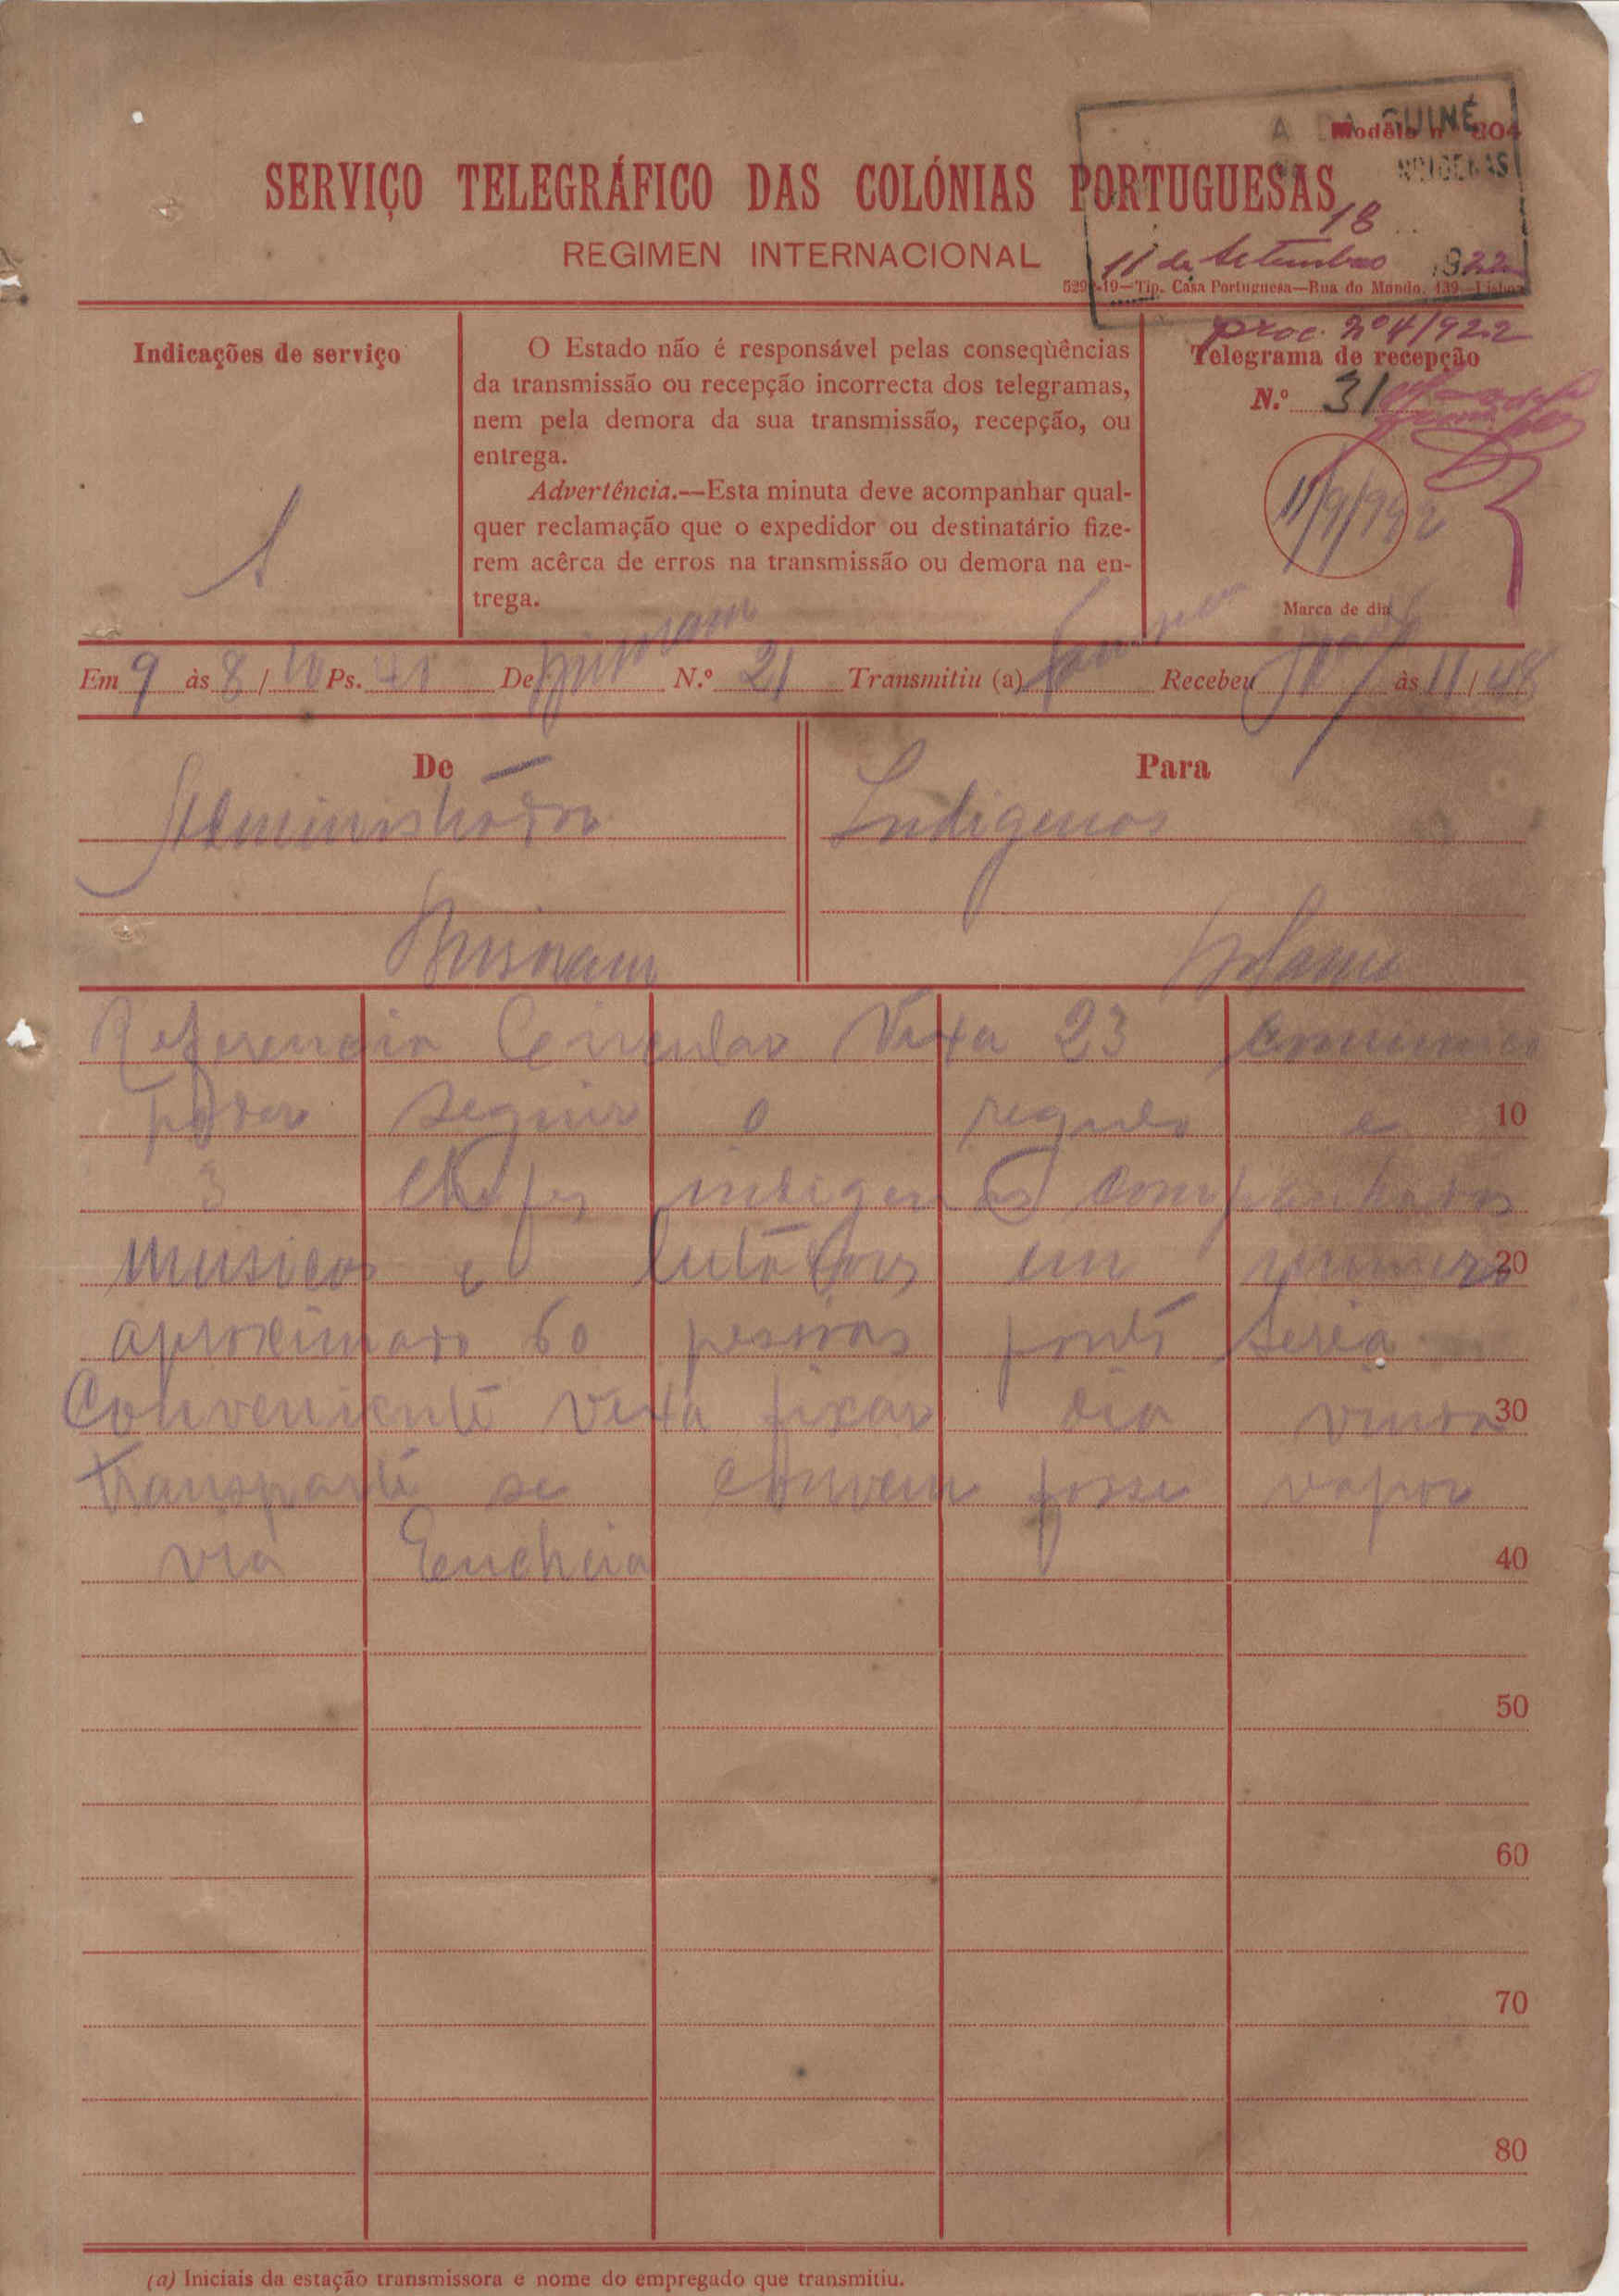 A DA GUINÉ
Modêlo n.º 804
INDIGENAS
SERVIÇO TELEGRÁFICO DAS COLÓNIAS PORTUGUESAS
18
REGIMEN INTERNACIONAL
11 de Setembro 1922
—Tip. Casa Portuguesa—Rua do Mundo, 139—Lisboa
proc. nº 4/922
Indicações de serviço
S
O Estado não é responsável pelas conseqùências
da transmissão ou recepção incorrecta dos telegramas,
nem pela demora da sua transmissão, recepção, ou
entrega.
Advertência.—Esta minuta deve acompanhar qual-
quer reclamação que o expedidor ou destinatário fize-
rem acêrca de erros na transmissão ou demora na en-
trega.
Telegrama de recepção
N.º 31
11/9/922
Marca de dia
Em 9 às 8/10 Ps. 41 De N.º 21 Transmitiu (a) Recebeu às 11/48
De
Administrador
Para
Indigenas
Bolama
Referencia Circular Vexa 23 Comunico
poder seguir o regulo e 10
3 Chefes indigenas companhados
musicos e lutadores em numero 20
aproximado 60 pessoas ponto seria
Conveniente Vexa fixar dia vinda 30
transporte se convem fosse vapor
via 40
50
60
70
80
(a) Iniciais da estação transmissora e nome do empregado que transmitiu.